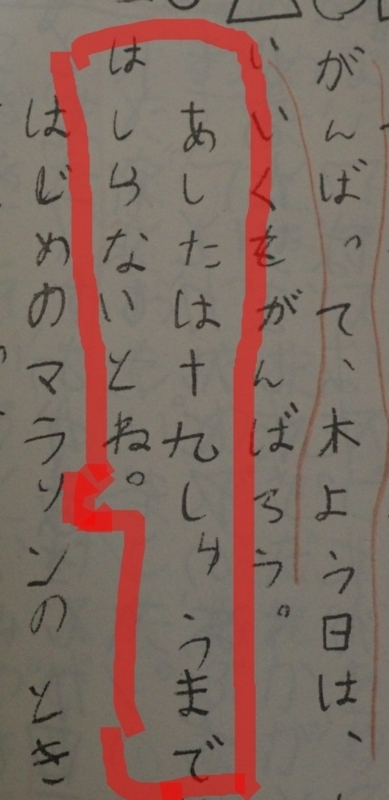 がんばって、木よう日は、
いいくをがんばろう。
あしたは十九しゅうまで
はしらないとね。
はじめのマラソンのとき